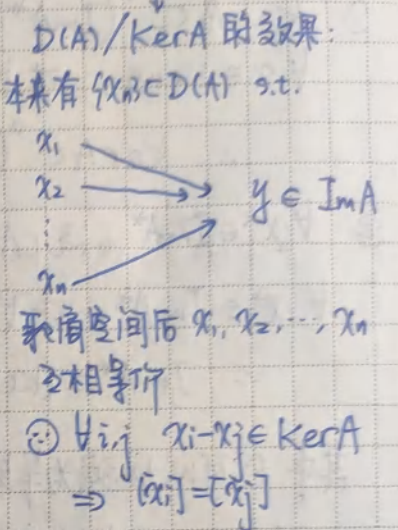 D(A)/KerA 的效果:
本来有 {xn}⊂D(A) s.t.
x₁
x₂ y ∈ ImA
⋮
xn
取商空间后 x₁, x₂, ⋯, xn
互相等价
∵ ∀i,j xi-xj ∈ KerA
⇒ [xi]=[xj]